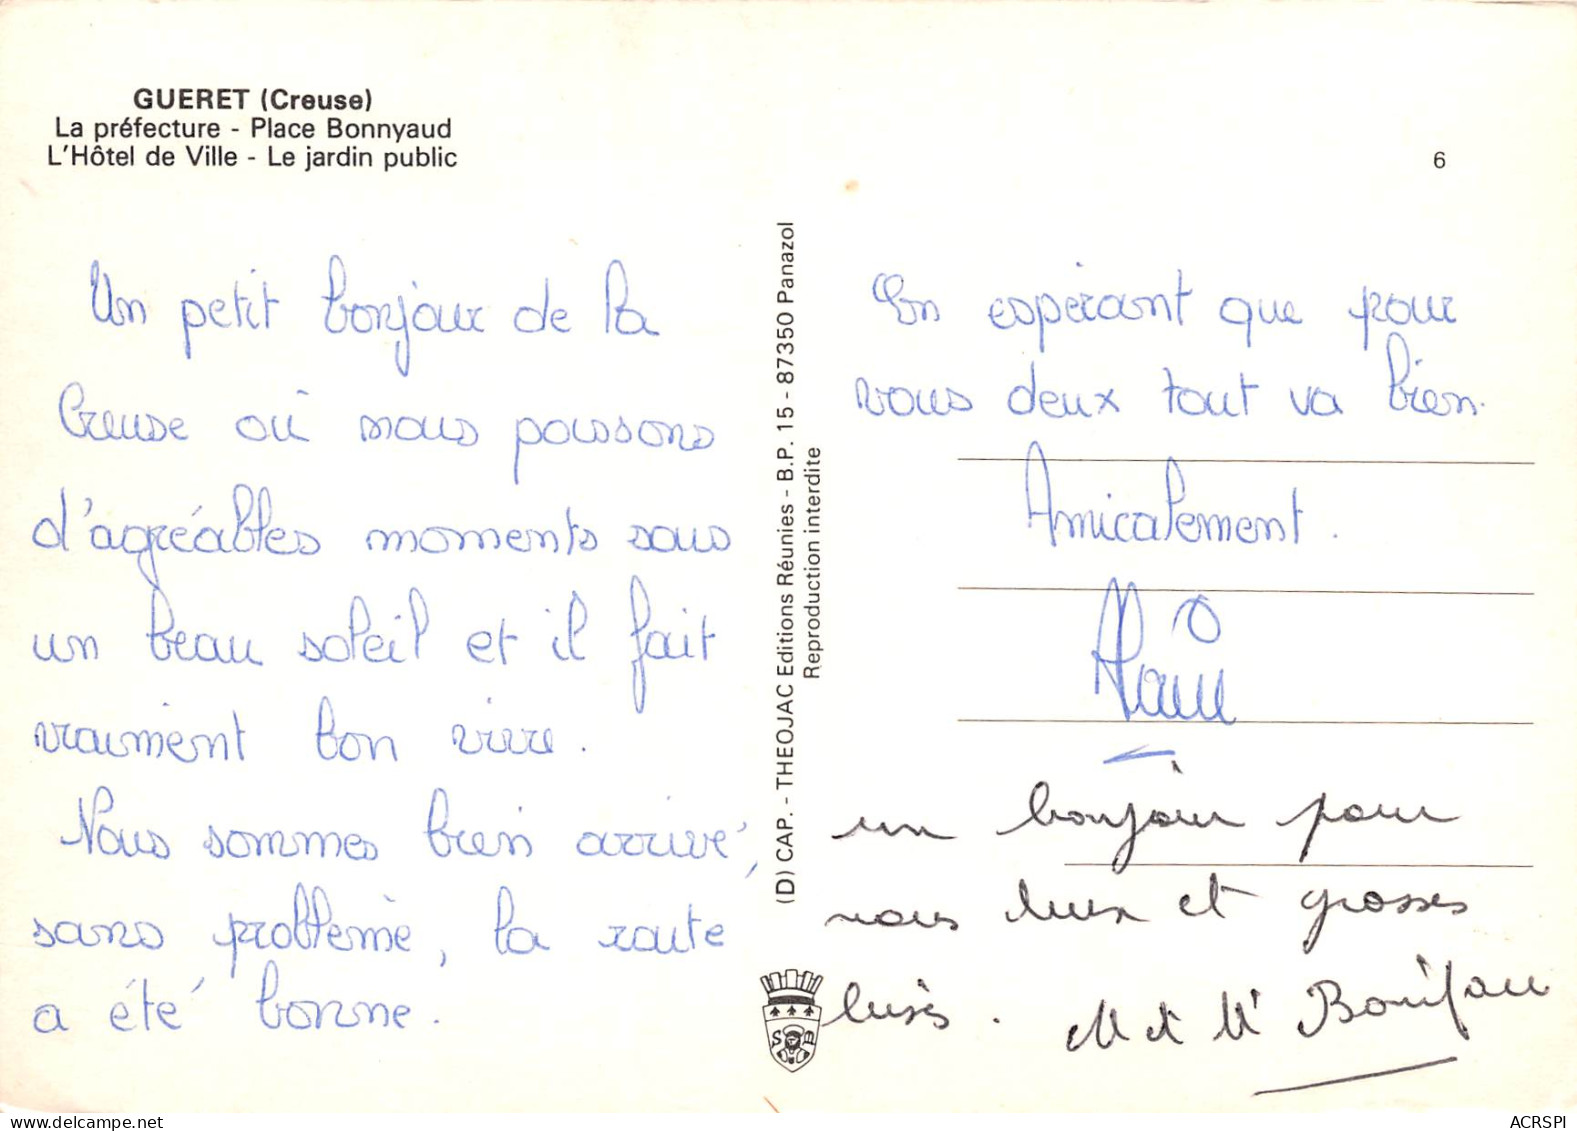 GUERET (Creuse)
La préfecture - Place Bonnyaud
L'Hôtel de Ville - Le jardin public
6
Un petit bonjour de la
Creuse où nous passons
d'agréables moments sous
un beau soleil et il fait
vraiment bon vivre.
Nous sommes bien arrivé,
sans problème, la route
a été bonne.
(D) CAP. - THEOJAC Editions Réunies - B.P. 15 - 87350 Panazol
Reproduction interdite
En espérant que pour
vous deux tout va bien.
Amicalement.
Alain
un bonjour pour
vous deux et grosses
bises.
M et Me Bonifau
ACRSPI